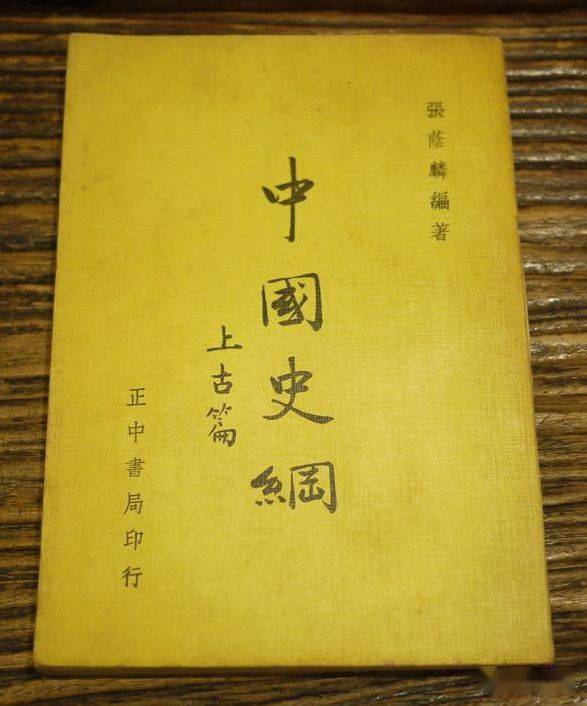 張蔭麟編著
中國史綱
上古篇
正中書局印行